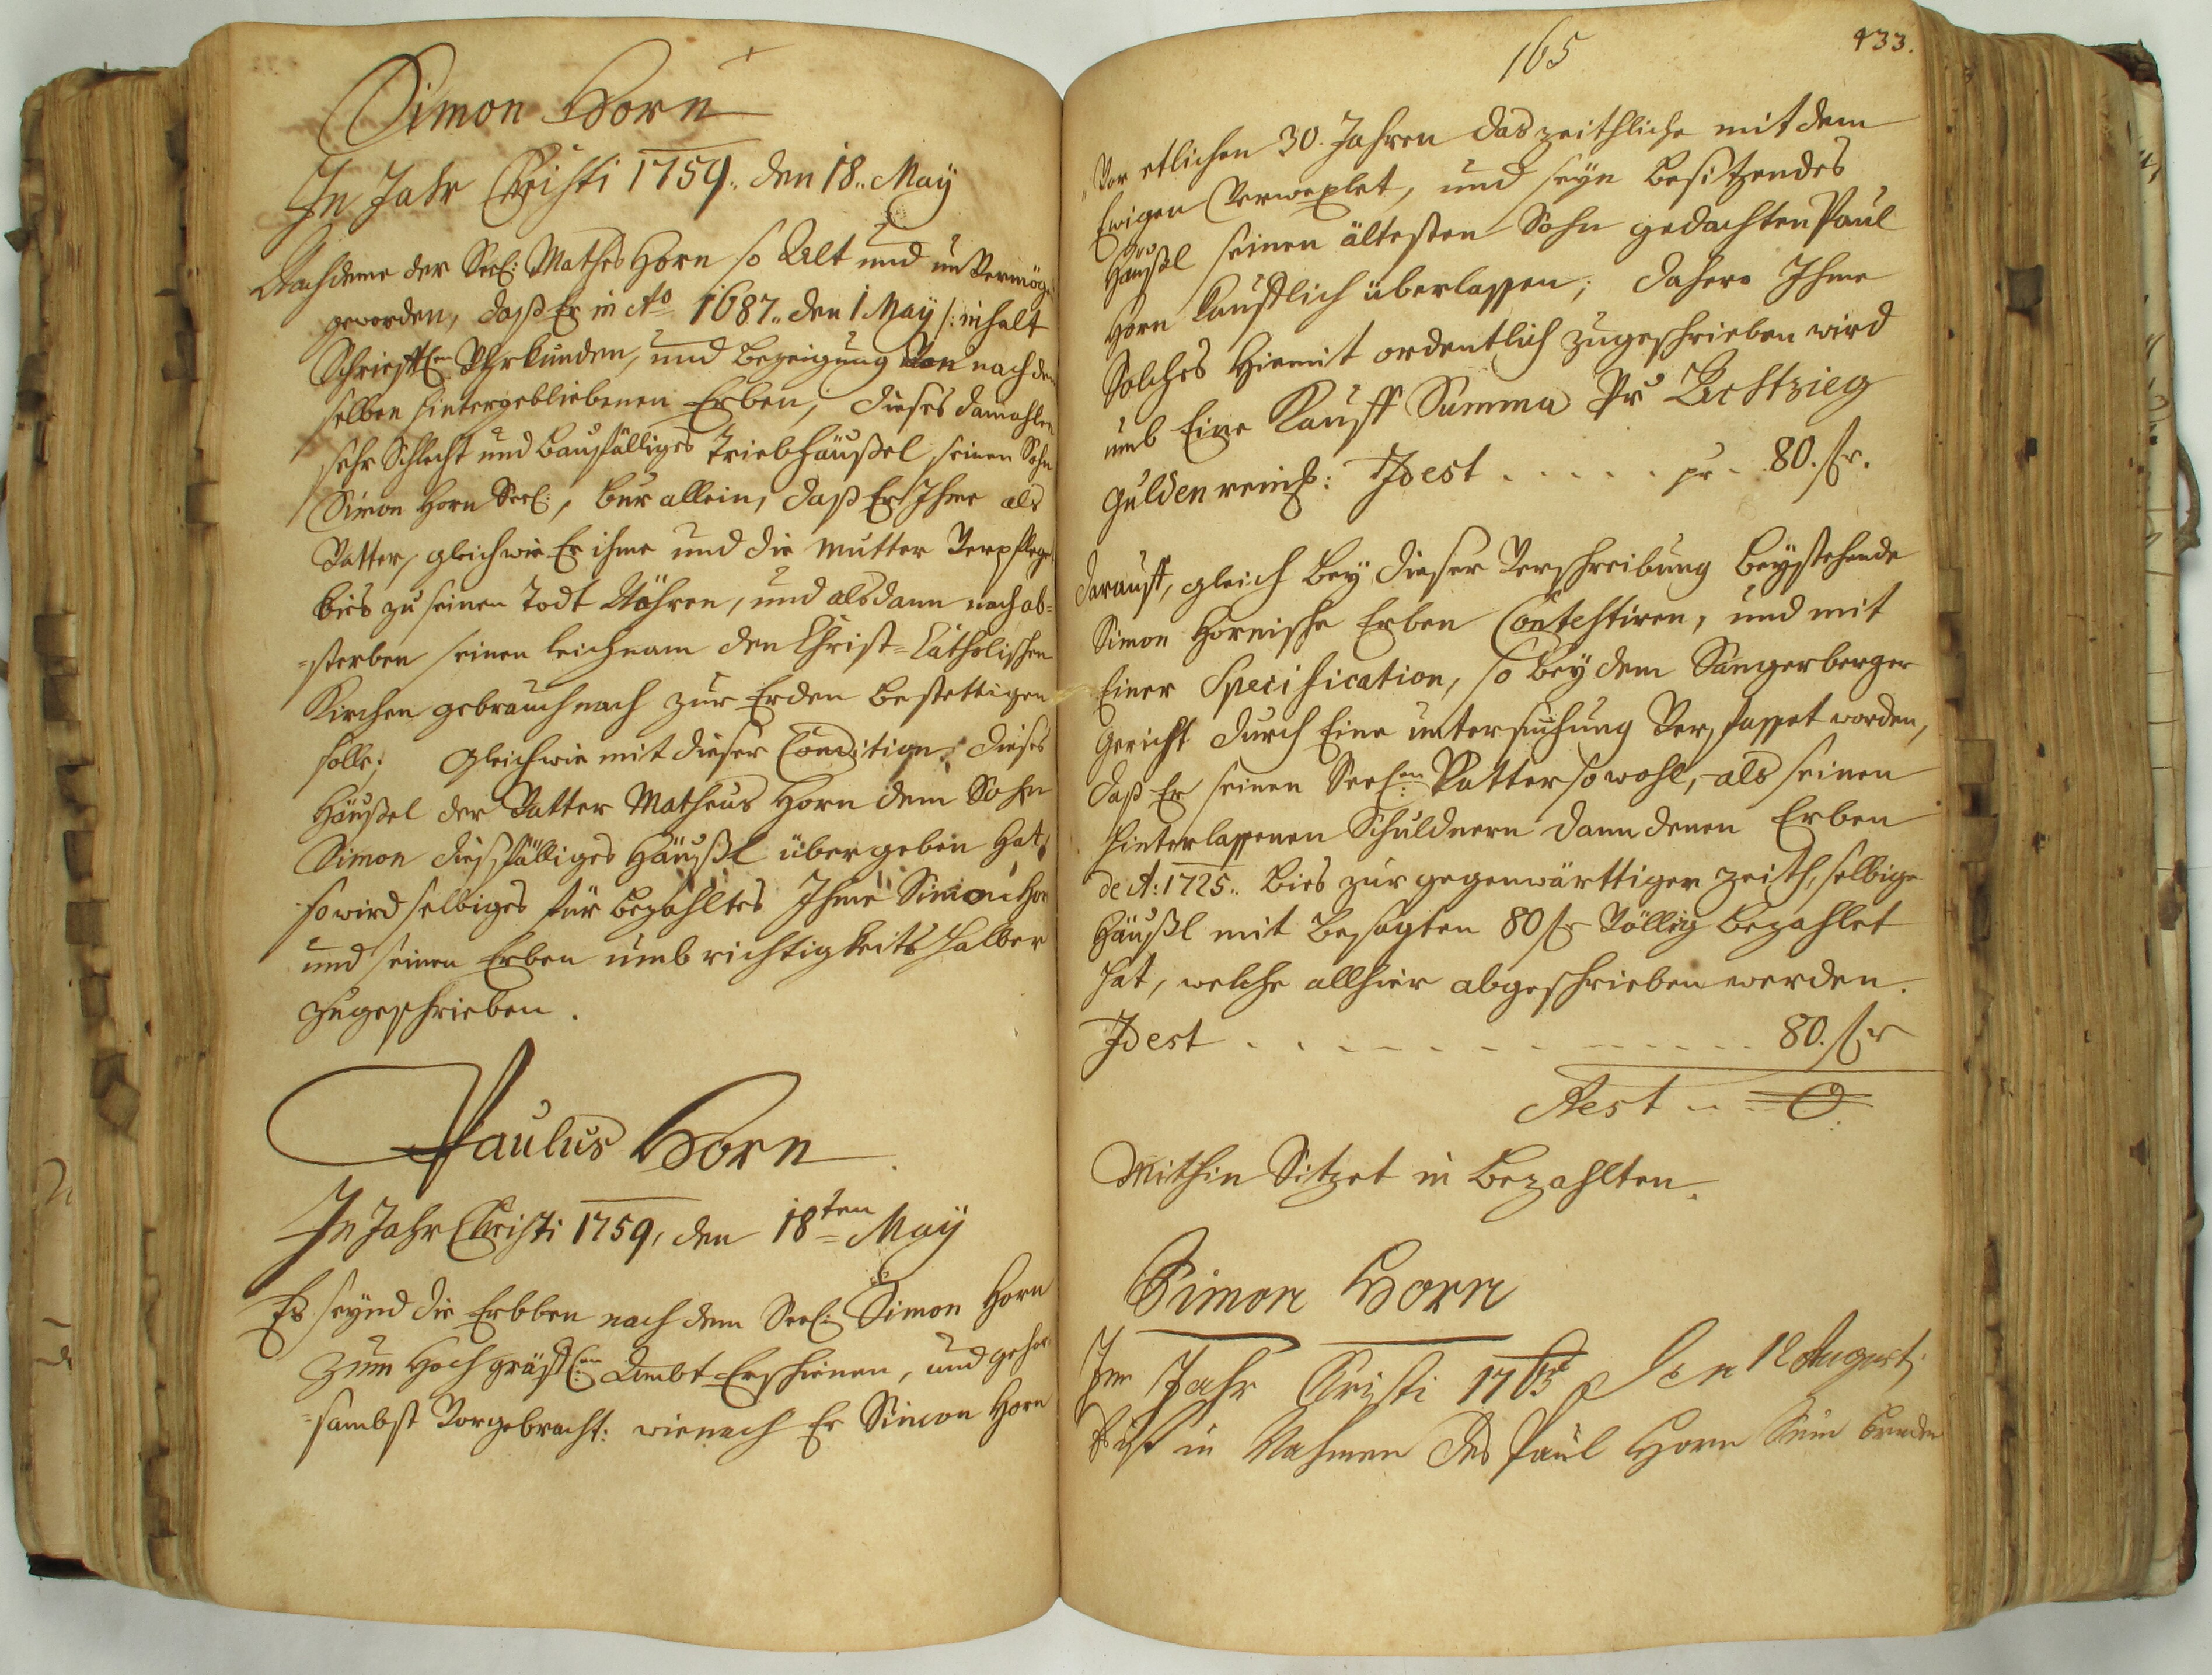 Simon Horn
In Jahr Christi 1759. den 18. May
Nachdeme der Seel: Mathes Horn so Alt und unvermög
geworden, daß Er in Ao 1687. den 1 May /: inhalt
Schriefftl:en Uhrkunden, und bezeigung von nach dem
selben hintergebliebenen Erben, dieses damahlen
sehr Schlecht und baufälliges Triebhäußel seinen Sohn
Simon Horn Seel:, bur allein, daß Er Ihme als
Vatter, gleich wie Er ihme und die Mutter Verpflege,
bies zu seinen Todt Nähren, und alsdann nach ab=
=sterben seinen leichnam den Christ=Catholischen
Kirchen gebrauch nach zur Erden bestettigen
solle; Gleichwie mit dieser Condition dieses
Häußel der Vatter Matheus Horn dem Sohn
Simon diesfälliges Häußl übergeben hat,
so wird selbiges für bezahltes Ihme Simon Horn
und seinen Erben umb richtigkeits halber
zugeschrieben.
Paulus Horn
In Jahr Christi 1759, den 18ten May
Es seynd die Erbben nach dem Seel: Simon Horn
zum Hochgräffl:en Ambt Erschienen, und gehor
=sambst vorgebracht: wienach Er Simon Horn
165
433.
Vor etlichen 30. Jahren das zeithliche mit dem
Ewigen Verwexlet, und seyn besitzendes
Häußl seinen ältesten Sohn gedachten Paul
Horn käufflich überlassen; dahero Ihme
Solches hiemit ordentlich zugeschrieben wird
umb Eine Kauff Summa Pr Achtzieg
gulden reinis: Idest . . . . . pr. 80. fr.
Darauff, gleich bey dieser Verschreibung beystehende
Simon Hornische Erben Contestiren, und mit
Einer Specification, so bey dem Sangerberger
Gericht durch Eine untersuchung Verfasset worden,
daß Er seinen Seel:en Vatter sowohl, als seinen
hinterlassenen Schuldnern dann denen Erben
de A: 1725. bies zur gegenwärttiger zeith, selbige
Häußl mit besagten 80 fr Völlig bezahlet
hat, welche allhier abgeschrieben werden.
Idest . . . . . . . . . . . 80. fr
Rest . . . 0.
Mithin Sitzet in bezahlten.
Simon Horn
Im Jahr Christi 1765 Den 12 August
in Nahmen des Paul Horn Sein bruder